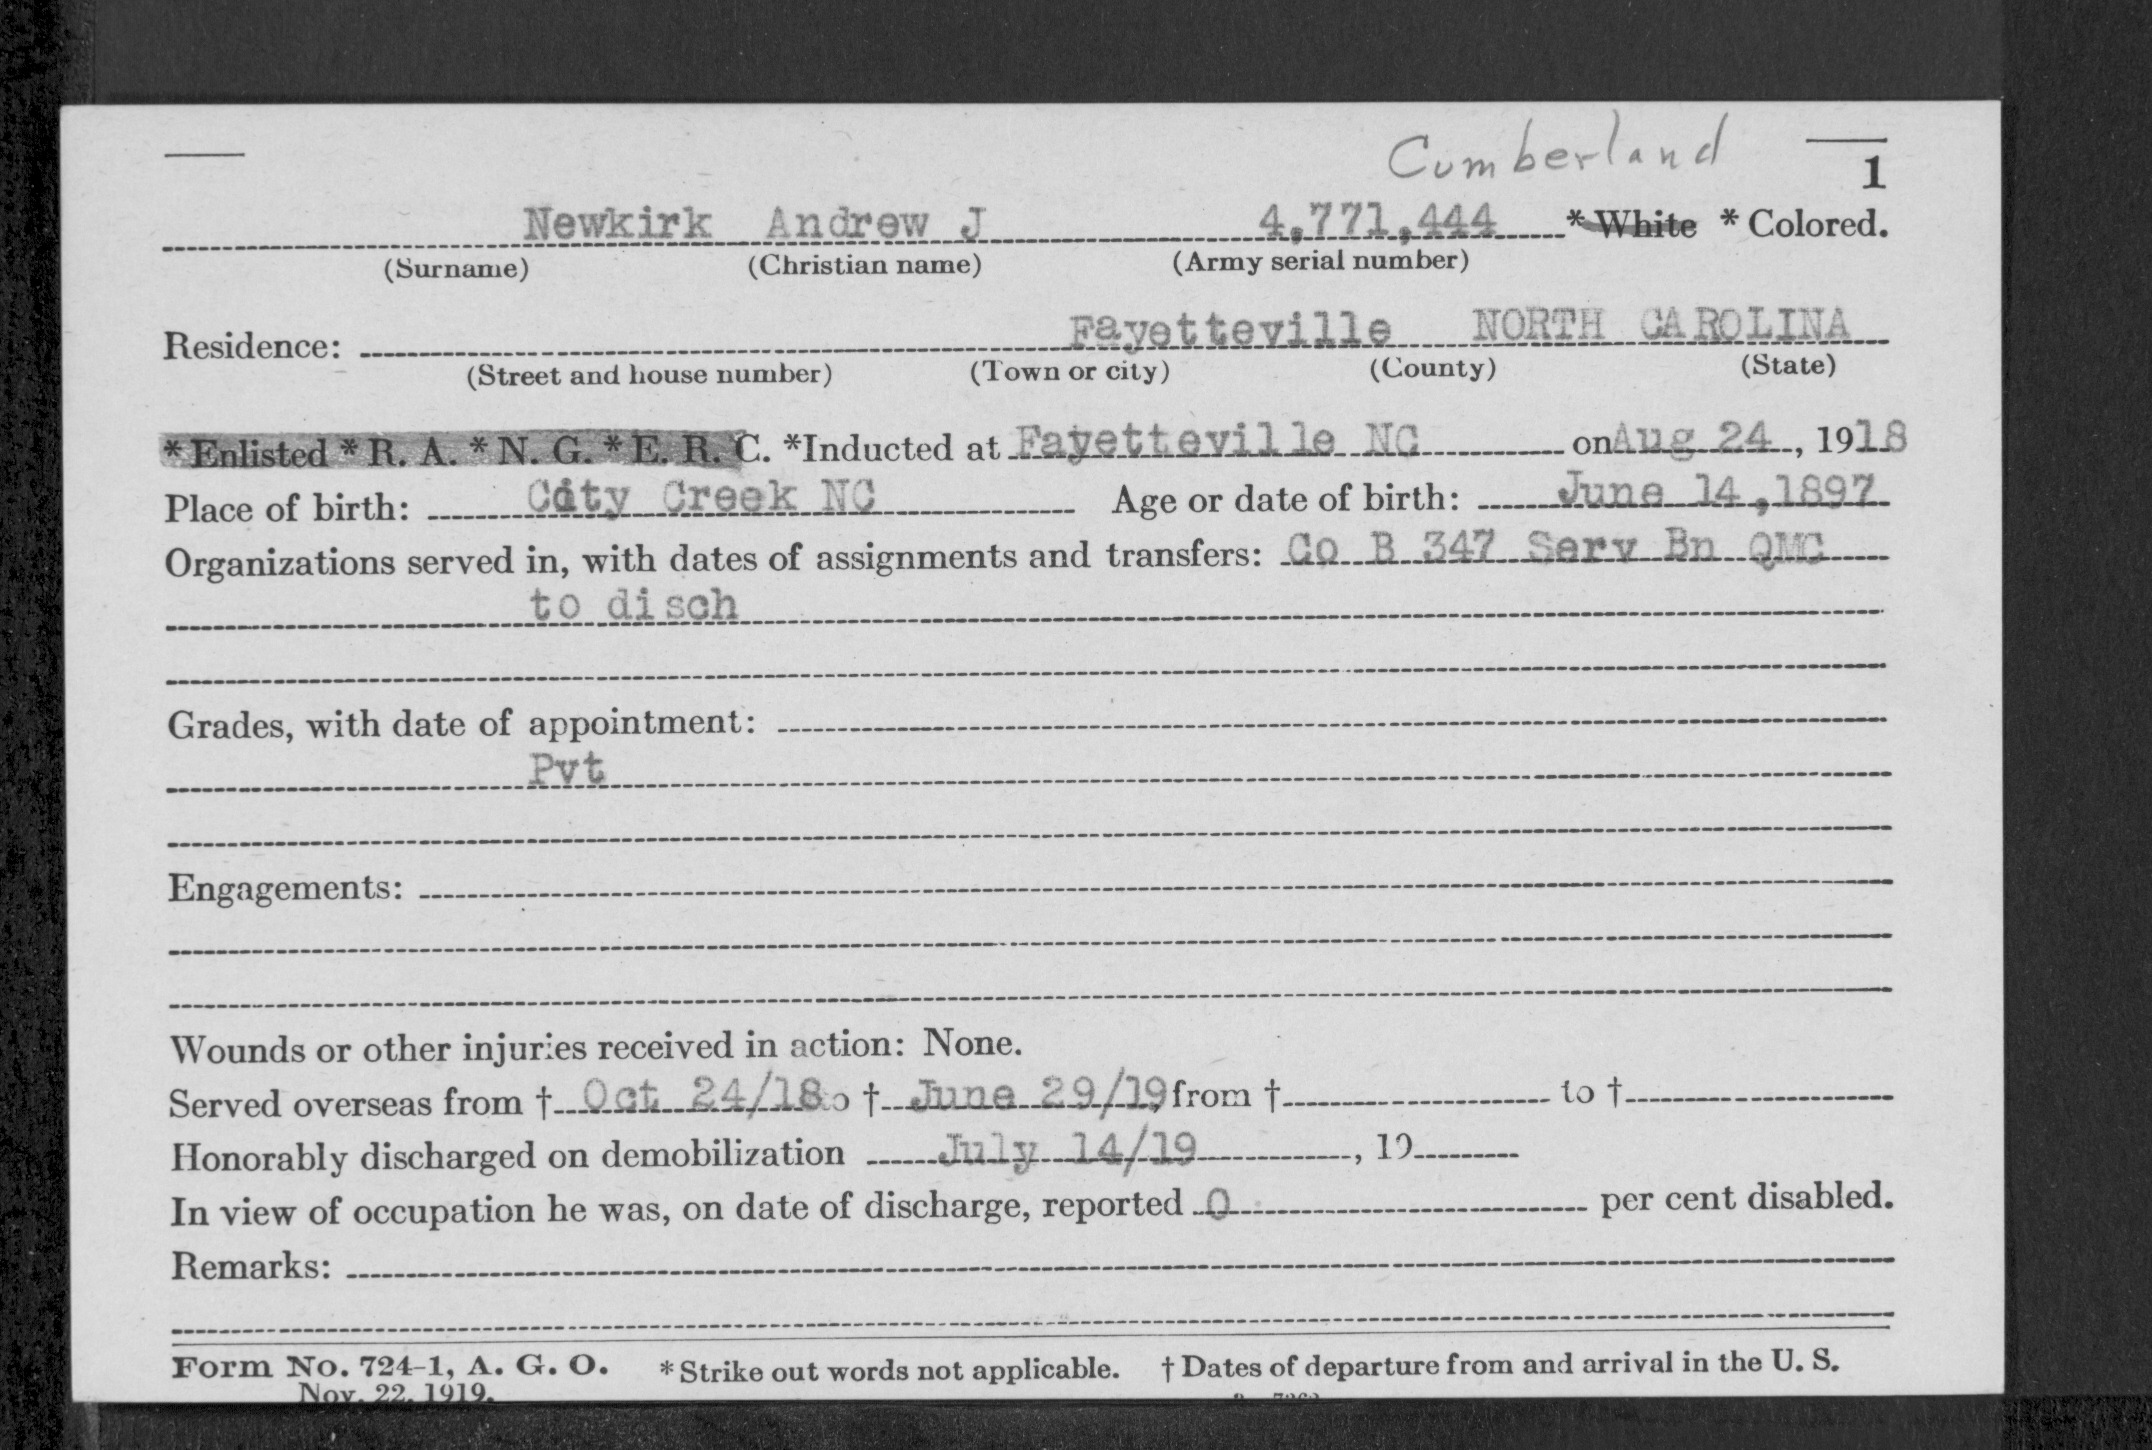 Cumberland
1
Newkirk Andrew J 4,771,444 * White * Colored.
(Surname) (Christian name) (Army serial number)
Residence: Fayetteville NORTH CAROLINA
(Street and house number) (Town or city) (County) (State)
* Enlisted * R. A. * N. G. * E. R. C. *Inducted at Fayetteville NC on Aug 24, 1918
Place of birth: City Creek NC Age or date of birth: June 14,1897
Organizations served in, with dates of assignments and transfers: Co B 347 Serv Bn QMC
to disch
Grades, with date of appointment:
Pvt
Engagements:
Wounds or other injuries received in action: None.
Served overseas from † Oct 24/18 to † June 29/19, from † to †
Honorably discharged on demobilization July 14/19, 19
In view of occupation he was, on date of discharge, reported 0 per cent disabled.
Remarks:
Form No. 724-1, A. G. O. * Strike out words not applicable. † Dates of departure from and arrival in the U. S.
Nov. 22, 1919.